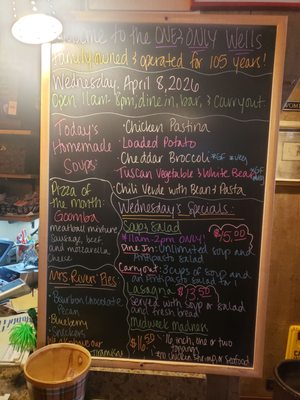 Welcome to the ONE & ONLY Wells
Family owned & operated for 105 years!
Wednesday, April 8, 2026
Open 11am - 8pm, dine in, bar, & carryout
Today's
Homemade
Soups:
• Chicken Pastina
• Loaded Potato
• Cheddar Broccoli *GF *veg
• Tuscan Vegetable & White Bean
• Chili Verde with Bean & Pasta
Pizza of
the month:
Goomba
meatball mixture
Sausage, beef
and mozzarella
cheese
Mrs River Pies
Bourbon Chocolate
Pecan
• Blueberry
Snickers
our
Tiramisu
Wednesday's Specials:
Soup & Salad
*11am-2pm ONLY*
$15.00
Dine In: Unlimited soup and
Antipasto salad
Carryout: 3 cups of soup and
an Antipasto salad for 1
Lasagna $13.50
Served with soup or salad
and fresh bread
Midweek Madness
$16.50
16 inch, one or two
toppings
no chicken, shrimp, or seafood